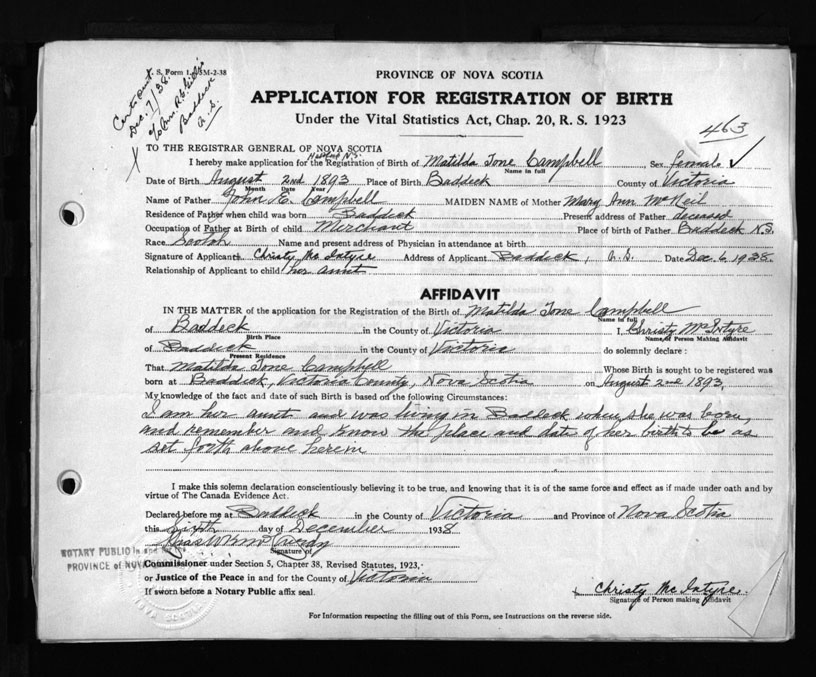 V. S. Form 1. 5M-2-38
Cert. sent
Dec. 7/38.
Baddeck
N.S.
PROVINCE OF NOVA SCOTIA
APPLICATION FOR REGISTRATION OF BIRTH
Under the Vital Statistics Act, Chap. 20, R. S. 1923
463
TO THE REGISTRAR GENERAL OF NOVA SCOTIA
Halifax N.S.
I hereby make application for the Registration of Birth of Matilda Tone Campbell Sex female ✓
Name in full
Date of Birth August 2nd 1893 Place of Birth Baddeck County of Victoria
Month Date Year
Name of Father John E. Campbell MAIDEN NAME of Mother Mary Ann McNeil
Residence of Father when child was born Baddeck Present address of Father deceased
Occupation of Father at Birth of child Merchant Place of birth of Father Baddeck N.S.
Race Scotch Name and present address of Physician in attendance at birth
Signature of Applicant Christy McIntyre Address of Applicant Baddeck, N.S. Date Dec. 6 1938
Relationship of Applicant to child her aunt
AFFIDAVIT
IN THE MATTER of the application for the Registration of the Birth of Matilda Tone Campbell
Name in full
of Baddeck in the County of Victoria I, Christy McIntyre
Birth Place Name of Person Making Affidavit
of Baddeck in the County of Victoria do solemnly declare:
Present Residence
That Matilda Tone Campbell Whose Birth is sought to be registered was
born at Baddeck, Victoria County, Nova Scotia on August 2nd 1893
My knowledge of the fact and date of such Birth is based on the following Circumstances:
I am her aunt and was living in Baddeck when she was born,
and remember and know the place and date of her birth to be as
set forth above herein
I make this solemn declaration conscientiously believing it to be true, and knowing that it is of the same force and effect as if made under oath and by
virtue of The Canada Evidence Act.
Declared before me at Baddeck in the County of Victoria and Province of Nova Scotia
this Sixth day of December 1938
Signature of
NOTARY PUBLIC in and
PROVINCE OF NOVA
Commissioner under Section 5, Chapter 38, Revised Statutes, 1923,
or Justice of the Peace in and for the County of Victoria
If sworn before a Notary Public affix seal.
NOVA SCOTIA
x Christy McIntyre
Signature of Person making Affidavit
For Information respecting the filling out of this Form, see Instructions on the reverse side.